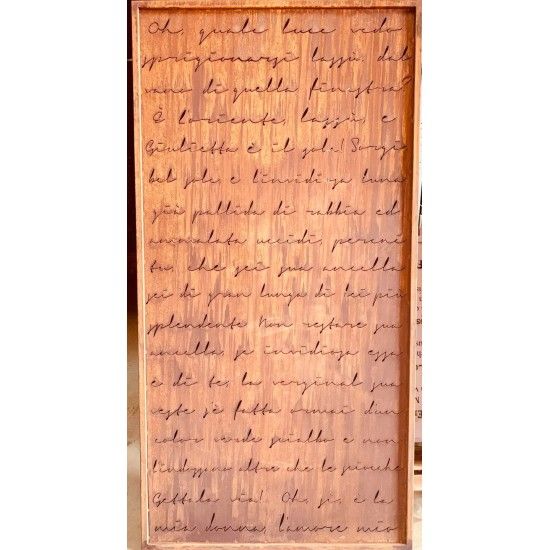 Oh, quale luce vedo
sprigionarsi laggiù, dal
vano di quella finestra?
È l'oriente, laggiù, e
Giulietta è il sole! Sorgi
bel sole, e l'invidiosa luna
già pallida di rabbia ed
ammalata uccidi, perché
tu, che sei sua ancella
sei di gran lunga di lei più
splendente Non restare sua
ancella, se invidiosa essa
è di te, la verginal sua
veste s'è fatta ormai d'un
color verde pialbo e non
l'indossano altre che le sciocche
Gettala via! Oh, sì, è la
mia donna, l'amore mio